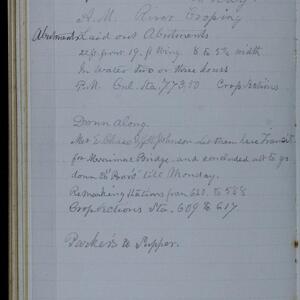 A.M. River Croping
Abutments Laid out Abutments
22 ft. front 19. ft Wing. 8 to 5 width
In water two or three hours
P.M. Cul. Sta. 773,50 Cropsections
Down along.
Met E. Chase & Johnson let them have Transit
for Merrimac Bridge, and concluded not to go
down till Monday.
Remarking Stations from 620. to 588
Cropsections Sta. 609 to 617
Parker's to Supper.